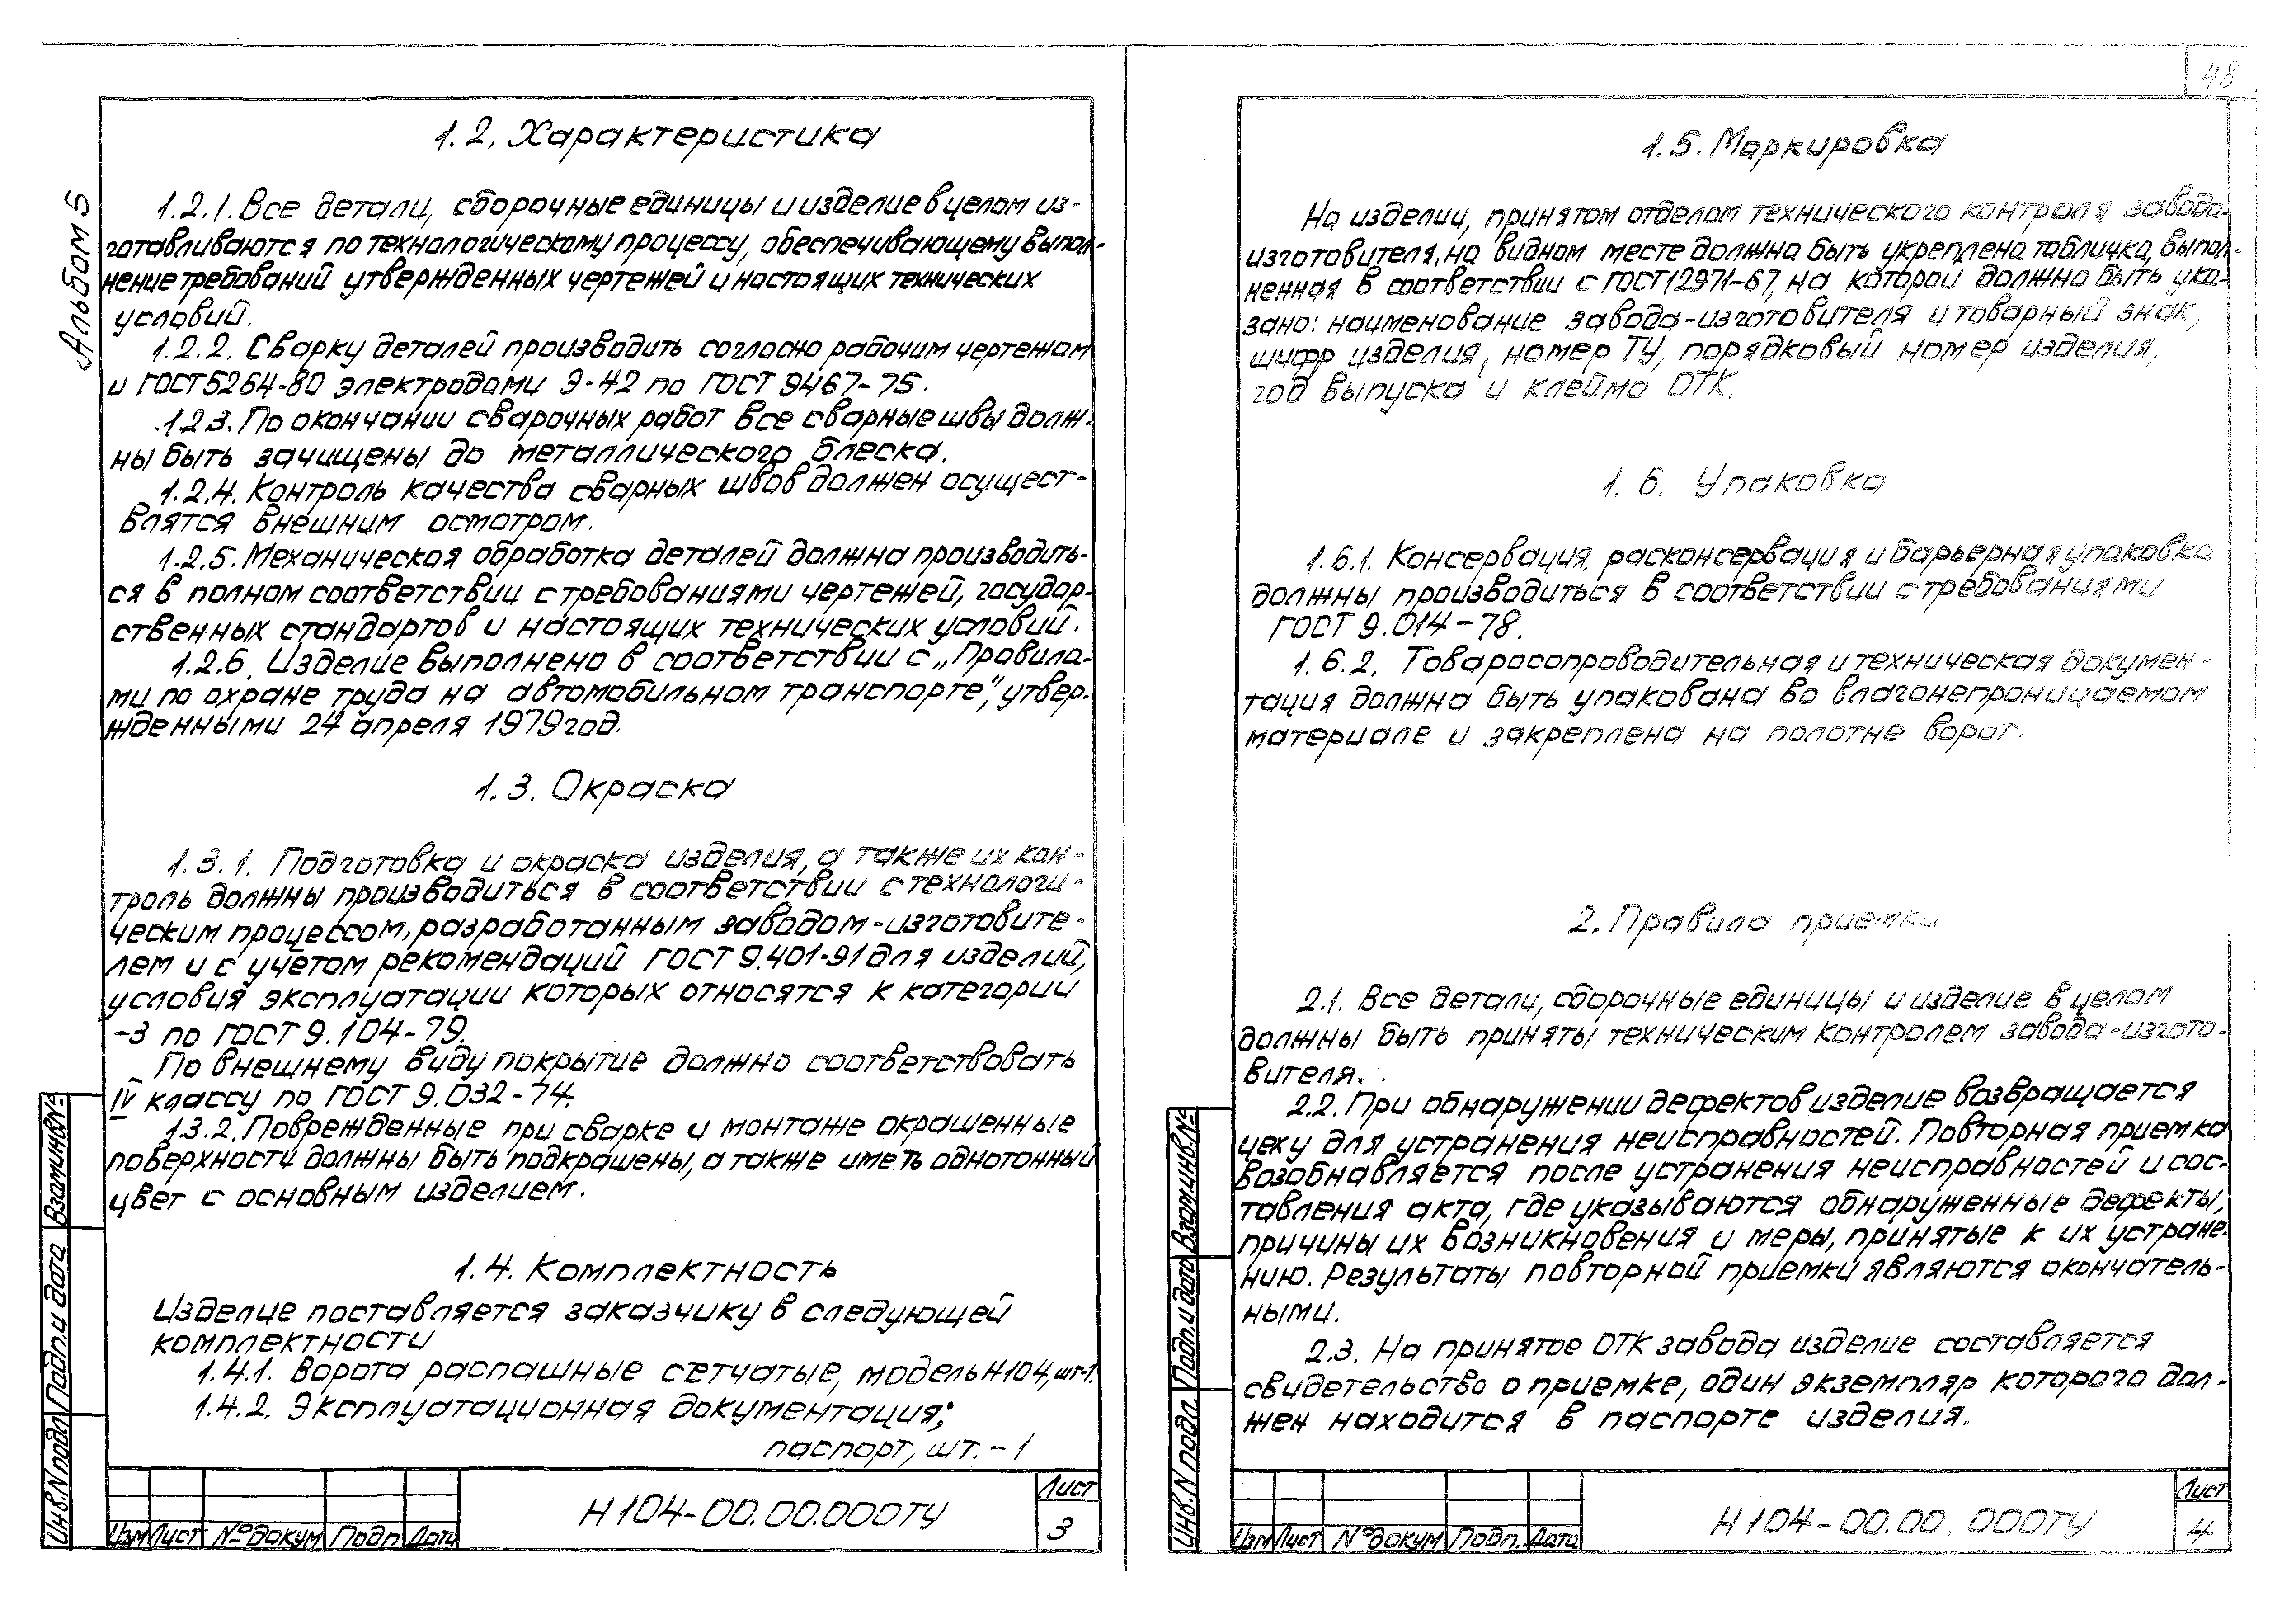 48
Альбом 5
1.2. Характеристика
1.2.1. Все детали, сборочные единицы и изделие в целом из-
готавливаются по технологическому процессу, обеспечивающему выпол-
нение требований утвержденных чертежей и настоящих технических
условий.
1.2.2. Сварку деталей производить согласно рабочим чертежам
и ГОСТ 5264-80 электродами Э-42 по ГОСТ 9467-75.
1.2.3. По окончании сварочных работ все сварные швы долж-
ны быть зачищены до металлического блеска.
1.2.4. Контроль качества сварных швов должен осущест-
влятся внешним осмотром.
1.2.5. Механическая обработка деталей должна производить-
ся в полном соответствии с требованиями чертежей, государ-
ственных стандартов и настоящих технических условий.
1.2.6. Изделие выполнено в соответствии с „Правила-
ми по охране труда на автомобильном транспорте", утвер-
жденными 24 апреля 1979 год.
1.3. Окраска
1.3.1. Подготовка и окраска изделия, а также их кон-
троль должны производиться в соответствии с технологи-
ческим процессом, разработанным заводом-изготовите-
лем и с учётом рекомендаций ГОСТ 9.401-91 для изделий,
условия эксплуатации которых относятся к категории
-3 по ГОСТ 9.104-79.
По внешнему виду покрытие должно соответствовать
IV классу по ГОСТ 9.032-74.
1.3.2. Поврежденные при сварке и монтаже окрашенные
поверхности должны быть подкрашены, а также иметь однотонный
цвет с основным изделием.
1.4. Комплектность
Изделие поставляется заказчику в следующей
комплектности
1.4.1. Ворота распашные сетчатые, модель Н104, шт-1.
1.4.2. Эксплуатационная документация;
паспорт, шт. - 1
Инв.N подл Подп.и дата Взам.инв.№
Изм Лист №докум Подп Дата
Н104-00.00.000ТУ
Лист
3
1.5. Маркировка
На изделии, принятом отделом технического контроля завода-
изготовителя, на видном месте должна быть укреплена табличка, выпол-
ненная в соответствии с ГОСТ 12971-67, на которой должно быть ука-
зано: наименование завода-изготовителя и товарный знак,
шифр изделия, номер ТУ, порядковый номер изделия,
год выпуска и клеймо ОТК.
1.6. Упаковка
1.6.1. Консервация, расконсервация и барьерная упаковка
должны производиться в соответствии с требованиями
ГОСТ 9.014-78.
1.6.2. Товаросопроводительная и техническая докумен-
тация должна быть упакована во влагонепроницаемом
материале и закреплена на полотне ворот.
2. Правила приемки
2.1. Все детали, сборочные единицы и изделие в целом
должны быть приняты техническим контролем завода-изгото-
вителя.
2.2. При обнаружении дефектов изделие возвращается
цеху для устранения неисправностей. Повторная приемка
возобнавляется после устранения неисправностей и сос-
тавления акта, где указываются обнаруженные дефекты,
причины их возникновения и меры, принятые к их устране-
нию. Результаты повторной приемки являются окончатель-
ными.
2.3. На принятое ОТК завода изделие составляется
свидетельство о приемке, один экземпляр которого дол-
жен находится в паспорте изделия.
Инв.N подл. Подп.и дата Взам.инв.№
Изм Лист №докум Подп. Дата
Н104-00.00.000ТУ
Лист
4